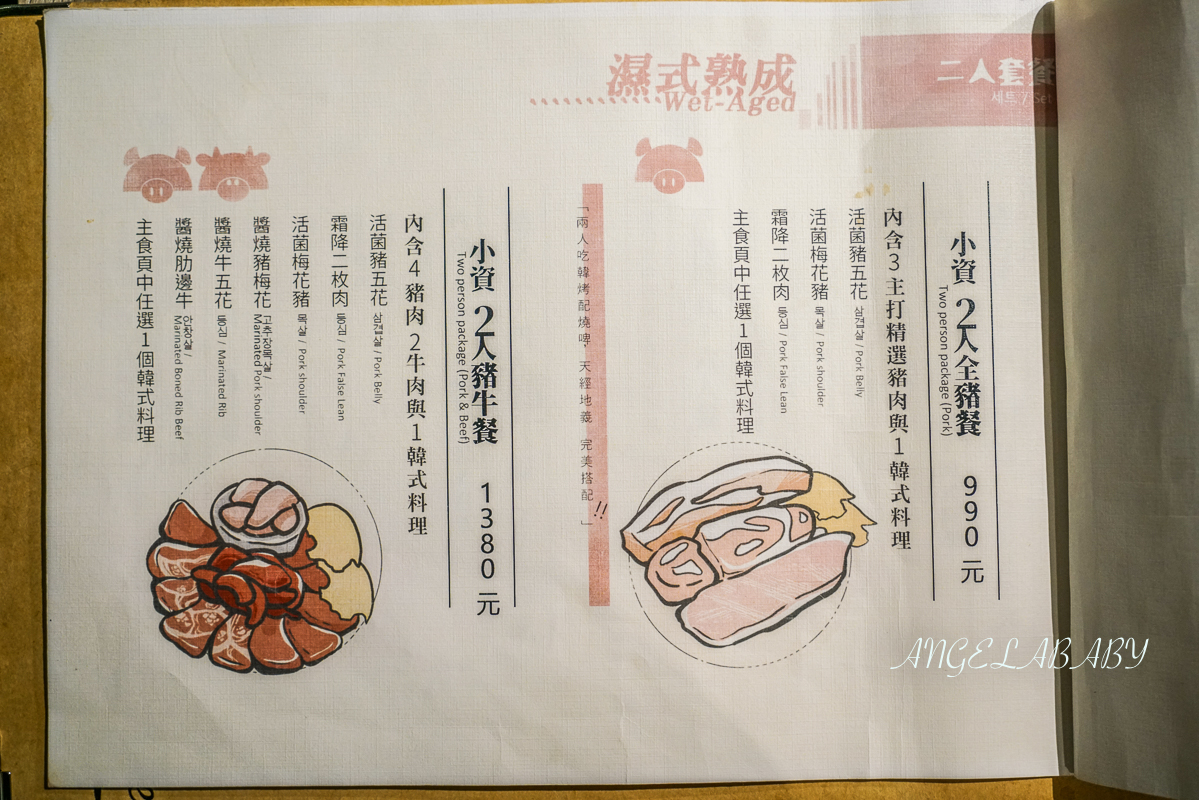 二人套餐
세트 / Set
濕式熟成
Wet-Aged
小資2人全豬餐 990元
Two person package (Pork)
內含3主打精選豬肉與1韓式料理
活菌豬五花 삼겹살 / Pork Belly
活菌梅花豬 목살 / Pork shoulder
霜降二枚肉 뽈깃 / Pork False Lean
主食頁中任選1個韓式料理
「兩人吃韓烤配燒啤，天經地義 完美搭配!!」
小資2人豬牛餐 1380元
Two person package (Pork & Beef)
內含4豬肉2牛肉與1韓式料理
活菌豬五花 삼겹살 / Pork Belly
霜降二枚肉 / Pork False Lean
活菌梅花豬 목살 / Pork shoulder
醬燒豬梅花 고추장목살 / Marinated Pork shoulder
醬燒牛五花 / Marinated Rib
醬燒肋邊牛 안창살 / Marinated Boned Rib Beef
主食頁中任選1個韓式料理
ANGELABABY